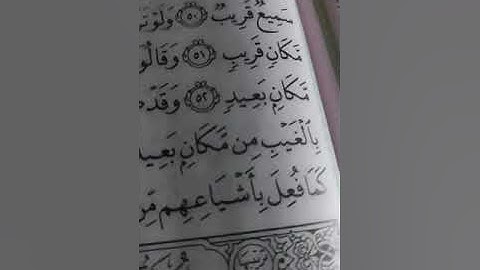 سَمِيعٌ قَرِيبٌ ٥٠ وَلَوْ
مَّكَانٍ قَرِيبٍ ٥١ وَقَالُوٓا
مَّكَانٍۭ بَعِيدٍ ٥٢ وَقَدْ
بِٱلْغَيْبِ مِن مَّكَانٍۭ بَعِيدٍ
كَمَا فُعِلَ بِأَشْيَاعِهِم مِّن